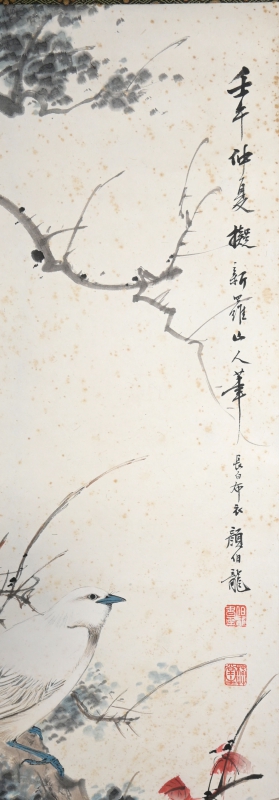 壬午仲夏擬新羅山人筆
長白布衣顏伯龍